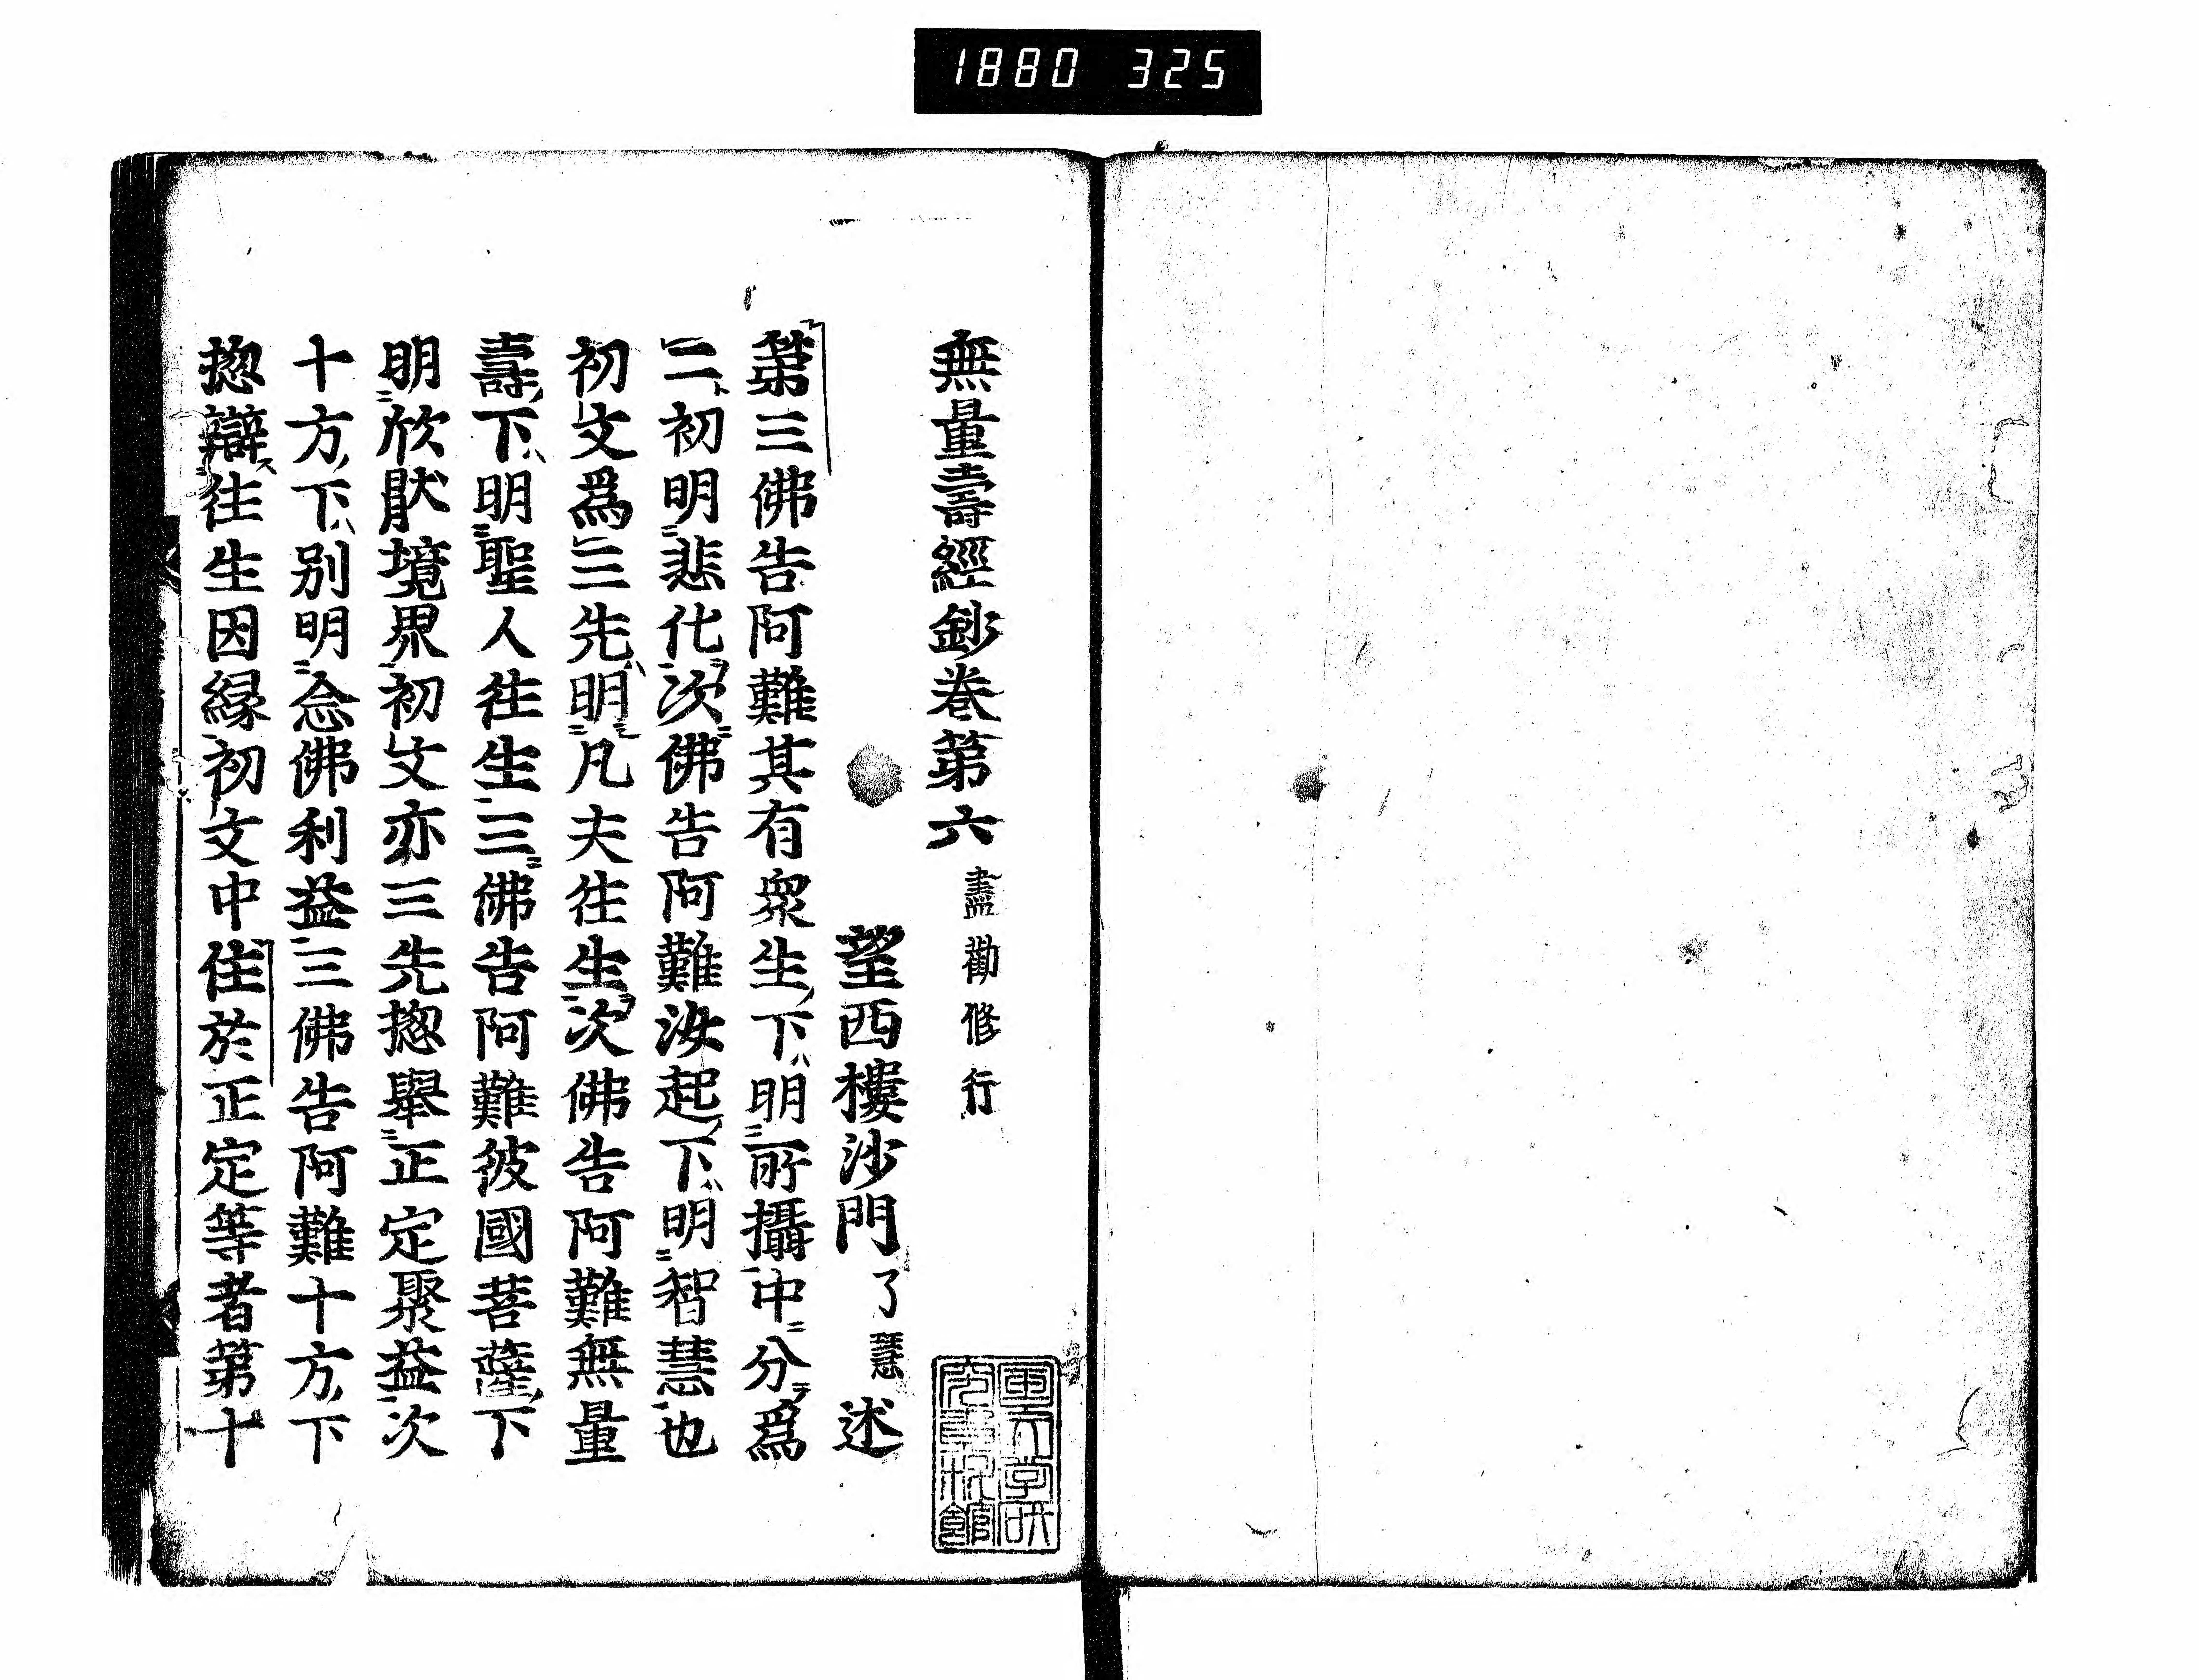 1880 325
無量壽經鈔卷第六 盡勸修行
望西樓沙門 了慧 述
第三佛告阿難其有衆生下明所攝中分爲
二初明悲化次佛告阿難汝起下明智慧也
初文爲三先明凡夫往生次佛告阿難無量
壽下明聖人往生三佛告阿難彼國菩薩下
明欣猒境界初文亦三先揔舉正定聚益次
十方下別明念佛利益三佛告阿難十方下
揔辯往生因縁初文中住於正定等者第十
國文学研
究資料館